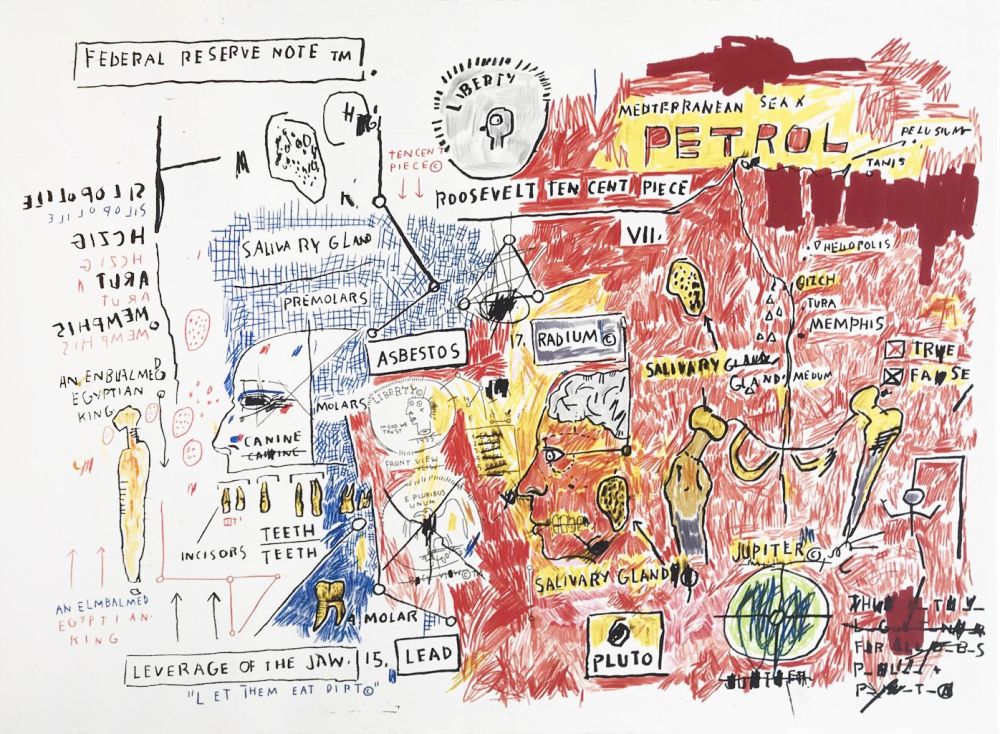 FEDERAL RESERVE NOTE TM.
LIBERTY
MEDITERRANEAN SEA
PETROL
PELUSIUM
TANIS
TEN CENT
PIECE©
ROOSEVELT TEN CENT PIECE
VII.
SILOPOLILE
SILOPOLILE
HCZIG
HCZIG
ARUT
ARUT
MEMPHIS
MEMPHIS
SALIVARY GLAND
PREMOLARS
HELIOPOLIS
GIZCH
TURA
MEMPHIS
MEDUM
ASBESTOS
17.
RADIUM ©
SALIVARY GLAND
GLAND
TRUE
FALSE
AN ENBUALMED
EGYPTIAN
KING
MOLARS
LIBERTY
IN GOD WE
TRUST
1955
FRONT VIEW
VIEW
CANINE
CANINE
E PLURIBUS
UNUM
INCISORS
TEETH
TEETH
JUPITER©
SALIVARY GLAND
AN ELMBALMED
EGYPTIAN-
KING
MOLAR
LEVERAGE OF THE JAW.
15.
LEAD
PLUTO
"LET THEM EAT DIRT©"